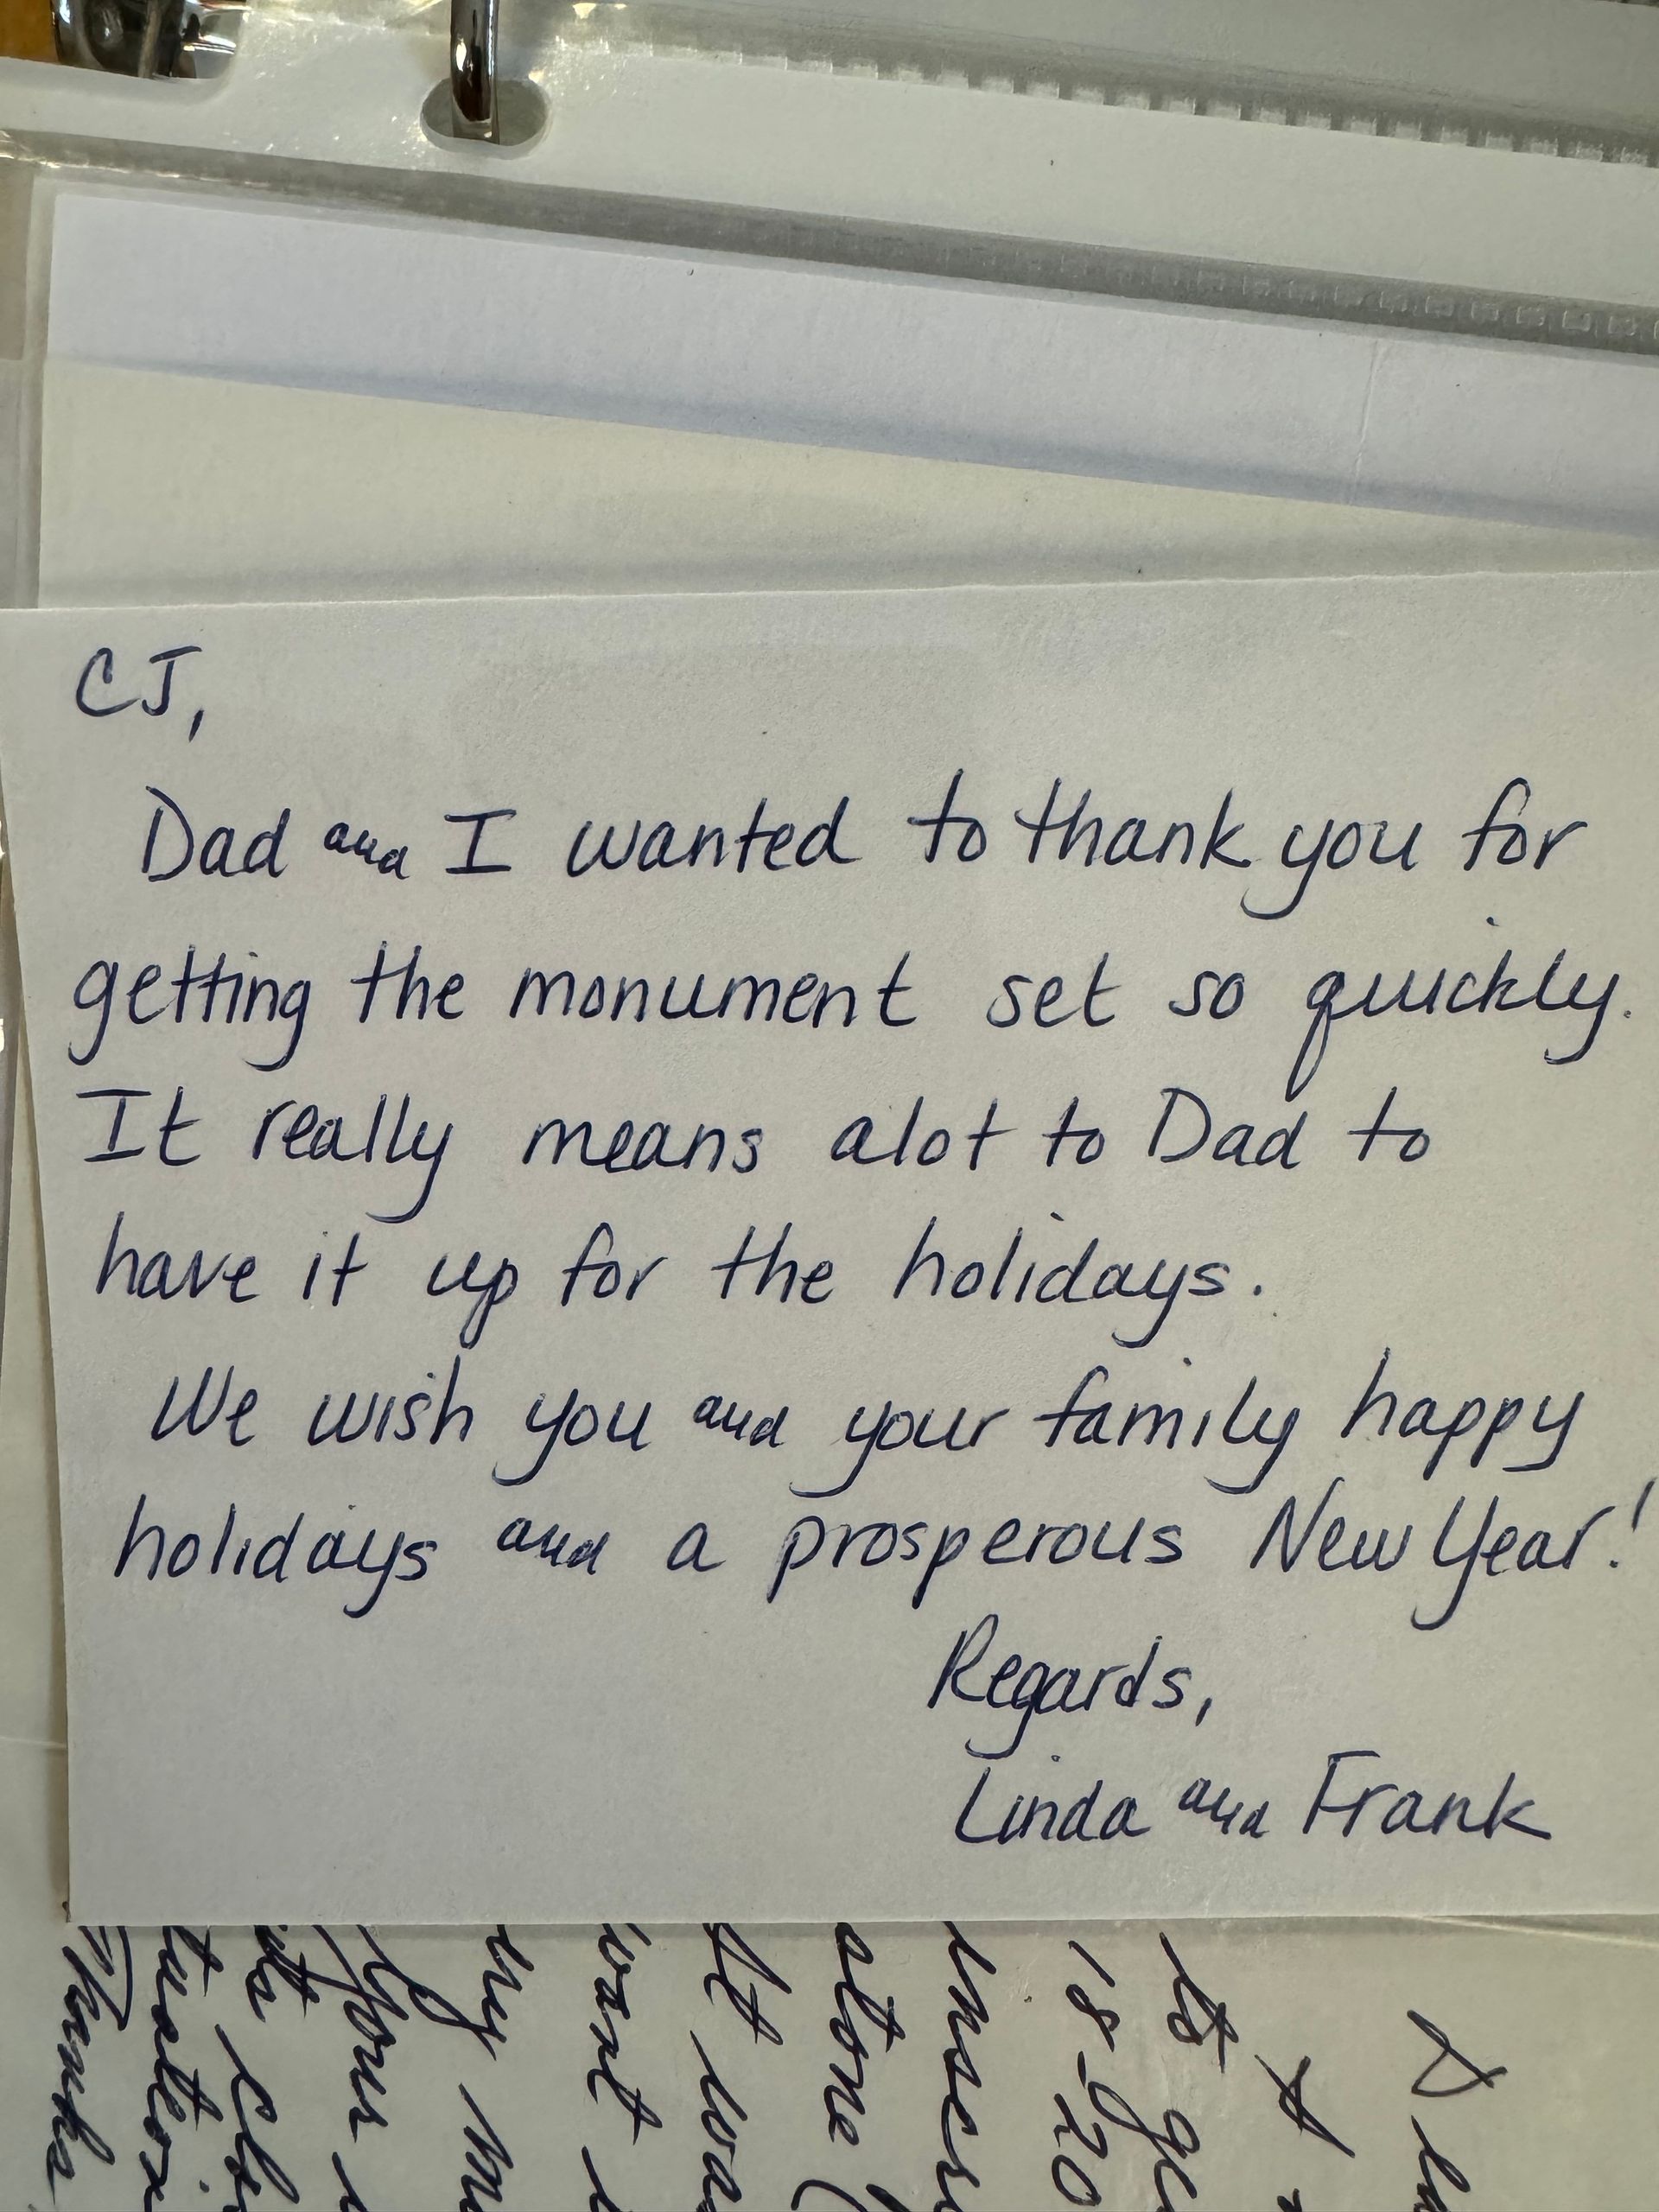 CJ,
Dad and I wanted to thank you for
getting the monument set so quickly.
It really means alot to Dad to
have it up for the holidays.
We wish you and your family happy
holidays and a prosperous New Year!
Regards,
Linda and Frank
to
18-20
stone
It
your
Thanks